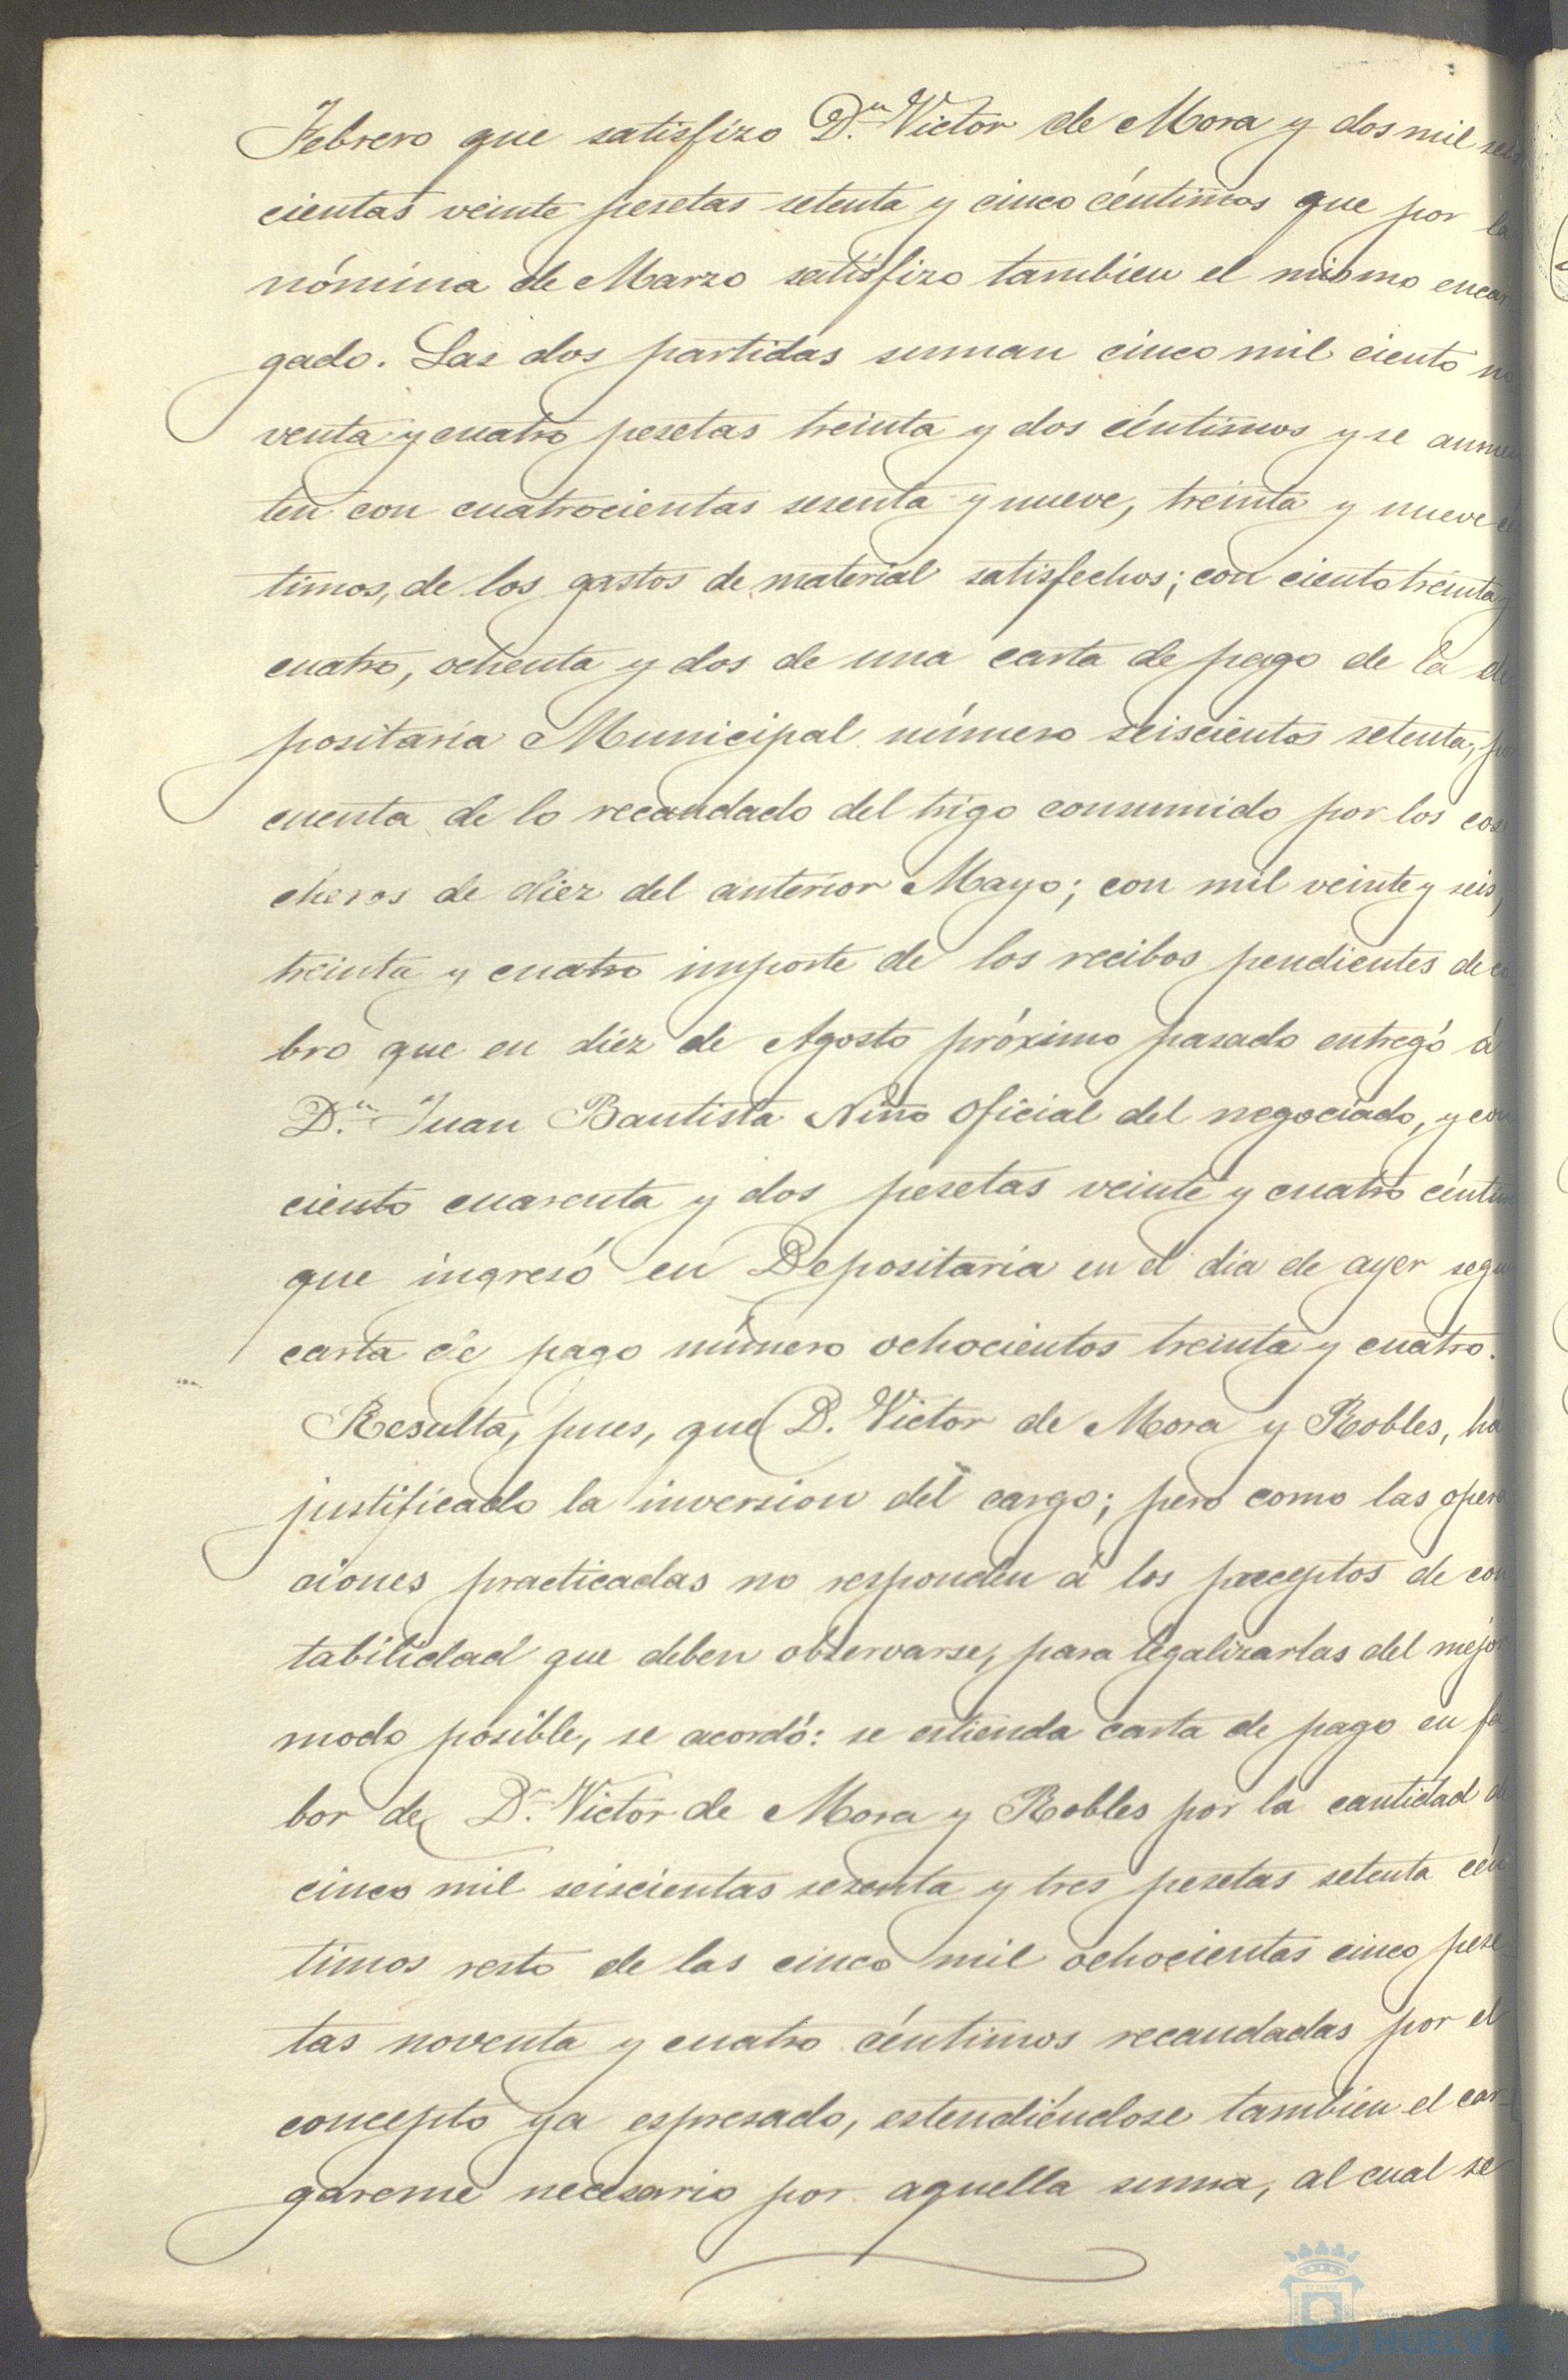 Febrero que satisfizo D.n Victor de Mora y dos mil seis
cientas veinte pesetas setenta y cinco céntimos que por la
nómina de Marzo satisfizo tambien el mismo encar
gado. Las dos partidas suman cinco mil ciento no
venta y cuatro pesetas treinta y dos céntimos y se aumen
ten con cuatrocientas sesenta y nueve, treinta y nueve cén
timos, de los gastos de material satisfechos; con ciento treinta y
cuatro, ochenta y dos de una carta de pago de la de
positaría Municipal número seiscientos setenta, por
cuenta de lo recaudado del trigo consumido por los cose
cheros de diez del anterior Mayo; con mil veinte y seis,
treinta y cuatro importe de los recibos pendientes de co
bro que en diez de Agosto próximo pasado entregó á
D.n Juan Bautista Niño Oficial del negociado, y con
ciento cuarenta y dos pesetas veinte y cuatro céntimos
que ingresó en Depositaría en el dia de ayer segun
carta de pago número ochocientos treinta y cuatro.
Resulta, pues, que D. Victor de Mora y Robles, ha
justificado la inversion del cargo; pero como las opera
ciones practicadas no responden á los preceptos de con
tabilidad que deben observarse, para legalizarlas del mejor
modo posible, se acordó: se estienda carta de pago en fa
bor de D.n Victor de Mora y Robles por la cantidad de
cinco mil seiscientas sesenta y tres pesetas setenta cén
timos resto de las cinco mil ochocientas cinco pese
tas noventa y cuatro céntimos recaudadas por el
concepto ya espresado, estendiéndose tambien el car-
gareme necesario por aquella suma, al cual se
HUELVA